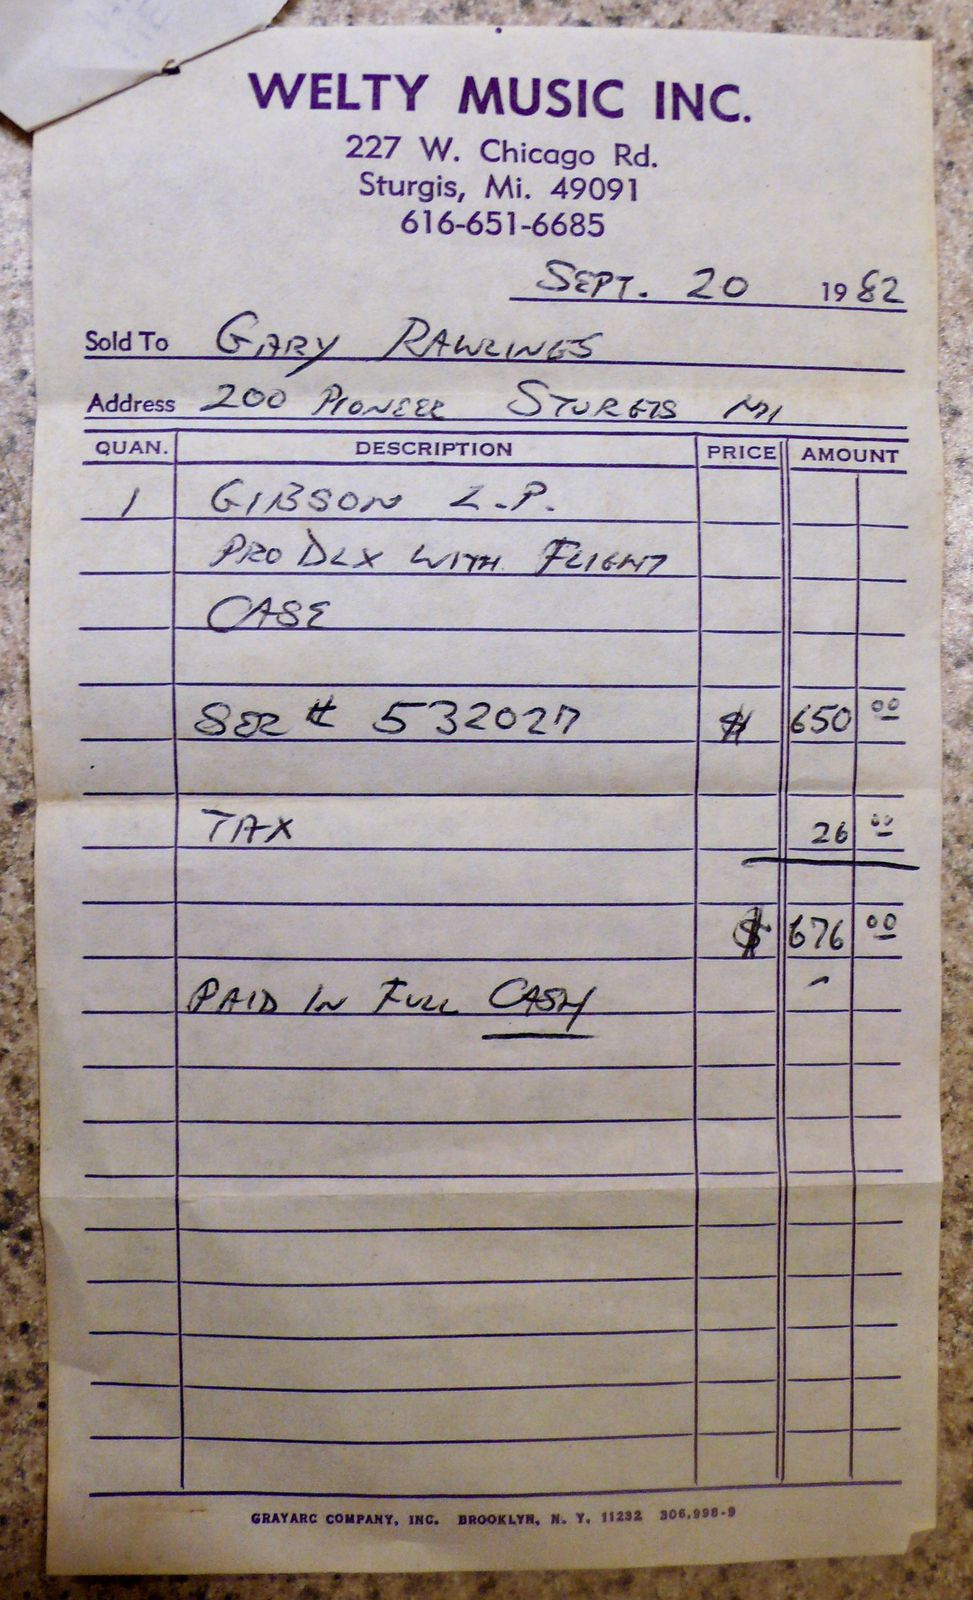 WELTY MUSIC INC.
227 W. Chicago Rd.
Sturgis, Mi. 49091
616-651-6685
SEPT. 20 1982
Sold To GARY RAWLINGS
Address 200 PIONEER STURGIS MI
QUAN. DESCRIPTION PRICE AMOUNT
1 GIBSON L.P.
PRO DLX WITH FLIGHT
CASE
SER # 532027 $ 650 00
TAX 26 00
$ 676 00
PAID IN FULL CASH
GRAYARC COMPANY, INC. BROOKLYN, N. Y. 11232 306.998-9